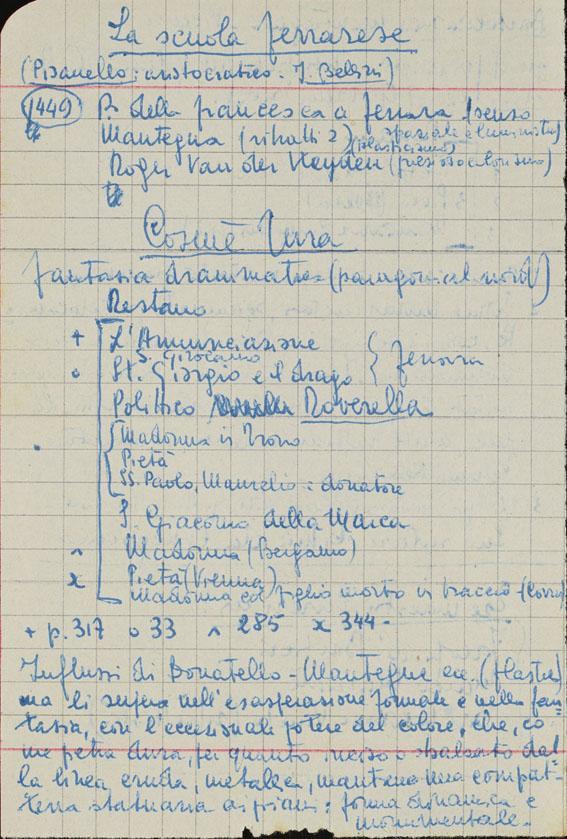 La scuola ferrarese
(Pisanello: aristocratico - J. Bellini)
1449) P. della francesca a ferrara (senso
spaziale e luministico)
Mantegna (ritratti 2) (plasticismo)
Roger Van der Weyden (prezioso colorismo)
Cosmè Tura
fantasia drammatica (paragoni col nord)
Restano
+ L'Annunciazione
S. Girolamo
o St. Giorgio e il drago } ferrara
Polittico Roverella
Madonna in Trono
Pietà
SS. Paolo, Maurelio e donatore
S. Giacomo della Marca
^ Madonna (Bergamo)
x Pietà (Vienna)
Madonna col figlio morto in braccio (Correr)
+ p. 317 o 33 ^ 285 x 344-
Influssi di Donatello - Mantegna ecc. (plastica)
ma li supera nell'esasperazione formale e nella fan-
tasia, con l'eccezionale potere del colore, che, co-
me pietra dura, per quanto inciso o sbalzato dal-
la linea cruda, metallica, mantiene una compat-
tezza statuaria ai piani: forma dinamica e
monumentale.